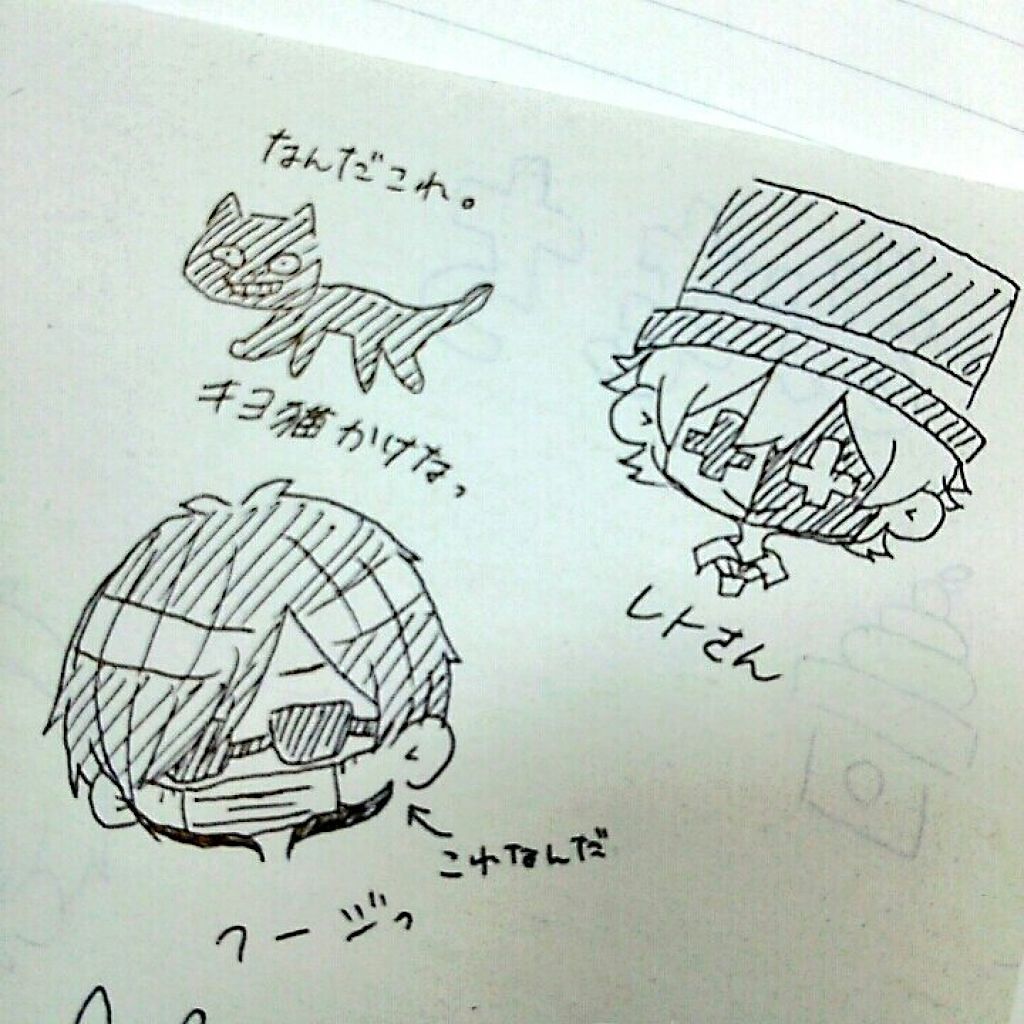 なんだこれ。
キヨ猫かけなっ
レトさん
これなんだ
フージっ